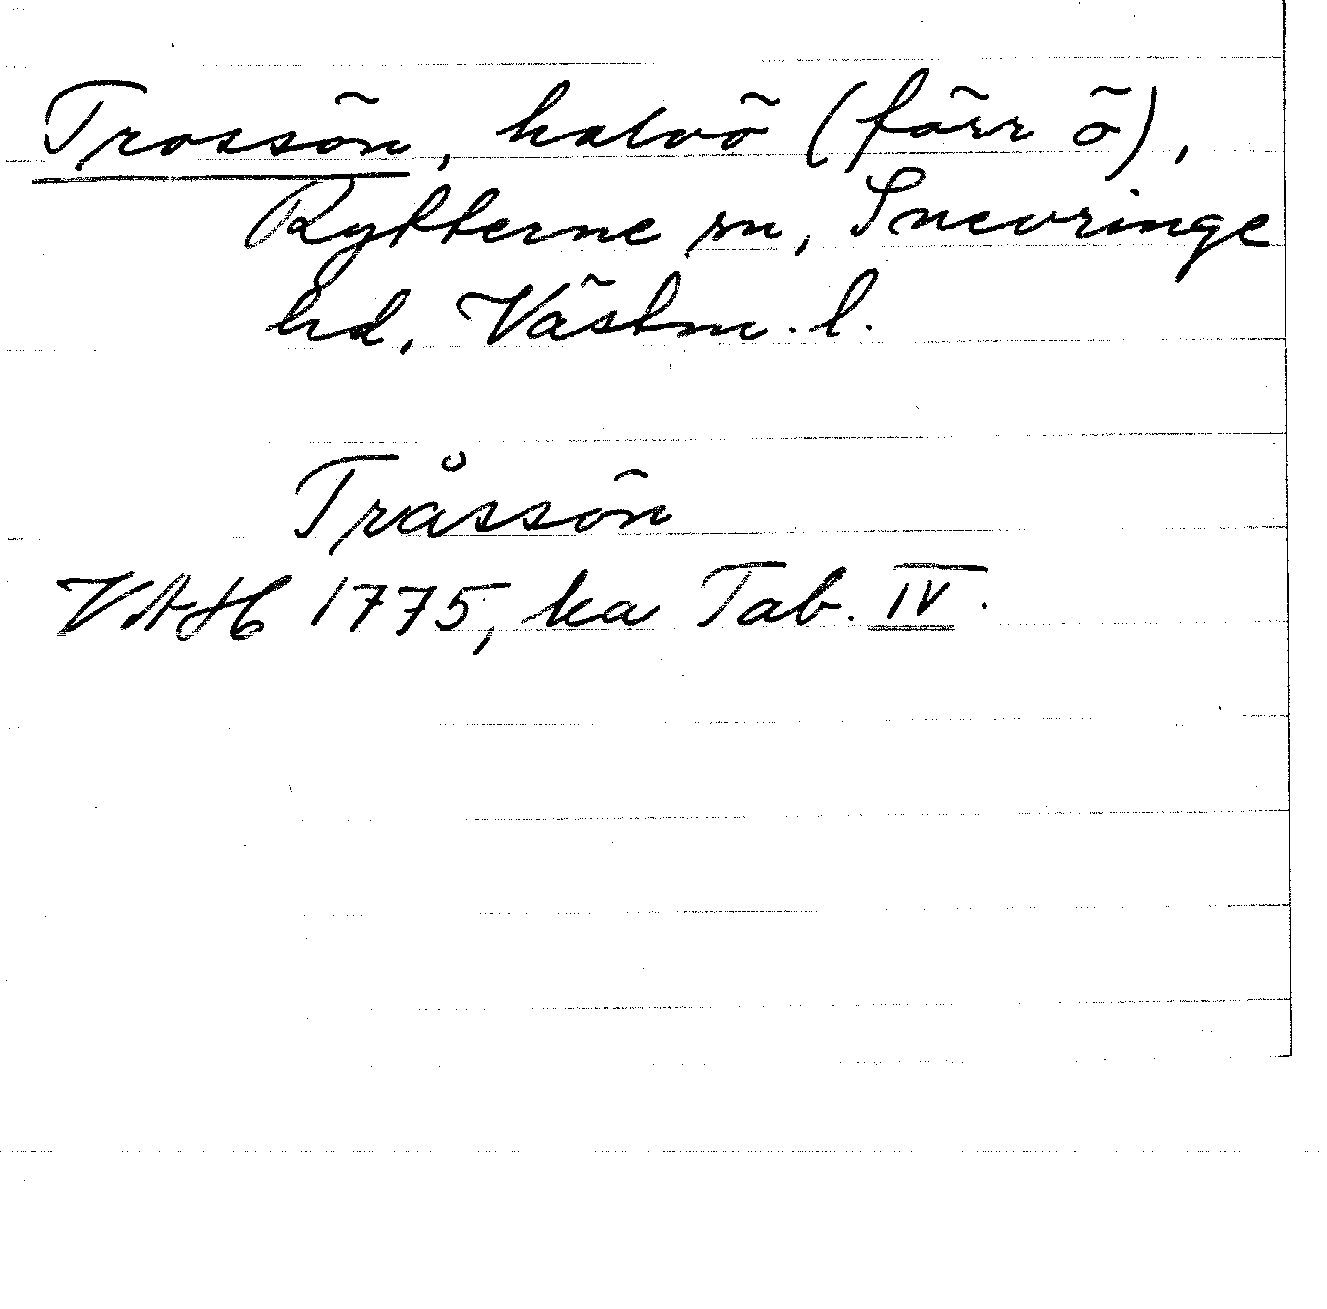 Trossön, halvö (förr ö),
Rytterne sn, Snevringe
hd, Västm. l.
Tråssön
VAH 1775, ka Tab. IV.